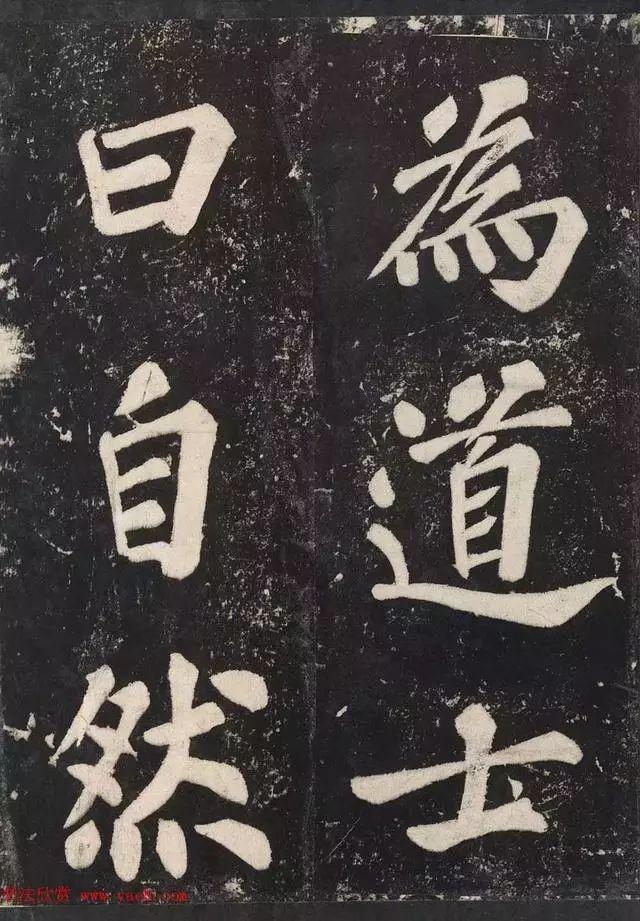 為道士
曰自然
书法欣赏 www.yac